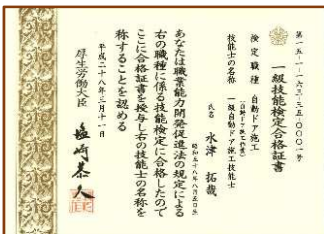 第一五-一-一六三-三五-〇〇〇一号
一級技能検定合格証書
検定職種　自動ドア施工
（自動ドア施工作業）
技能士の名称　一級自動ドア施工技能士
氏名　水津　拓哉
昭和五十八年八月五日生
あなたは職業能力開発促進法の規定による
右の職種に係る技能検定に合格したので
ここに合格証書を授与し右の技能士の名称を
称することを認める
平成二十八年三月十一日
厚生労働大臣　塩崎恭久